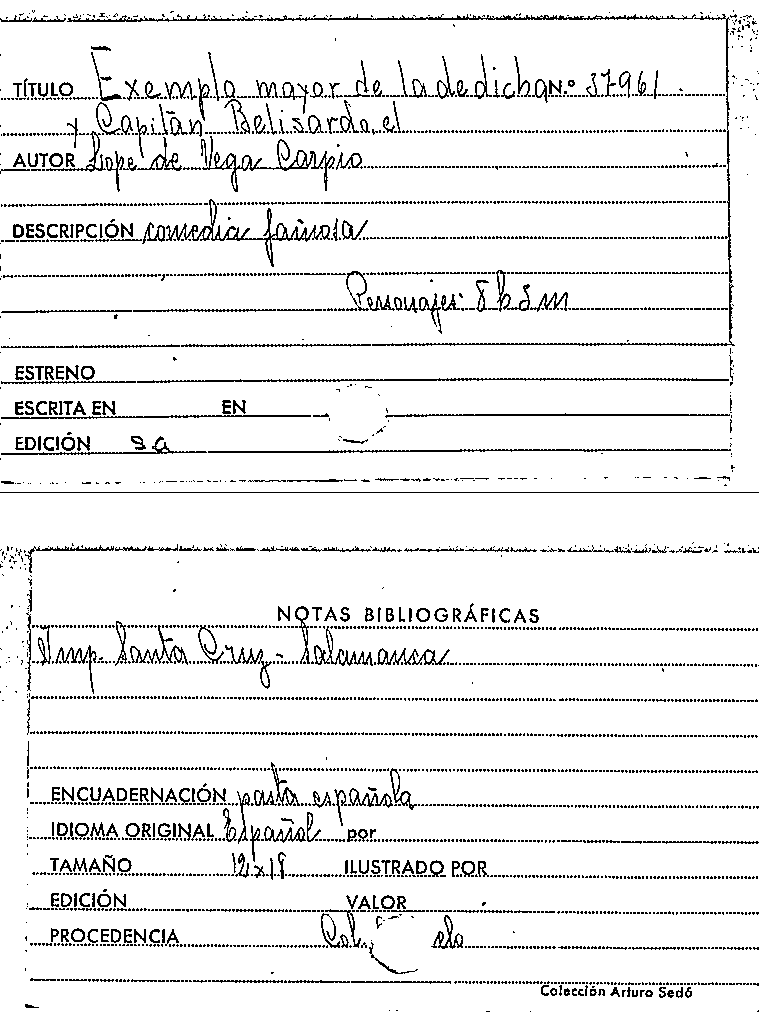 TÍTULO Exemplo mayor de la dedicha N.º 37961
y Capitán Belisardo, el
AUTOR Lope de Vega Carpio
DESCRIPCIÓN comedia famosa
Personajes: 8 h 3 m
ESTRENO
ESCRITA EN EN
EDICIÓN s.a
NOTAS BIBLIOGRÁFICAS
Imp. Santa Cruz - Salamanca
ENCUADERNACIÓN pasta española
IDIOMA ORIGINAL Español por
TAMAÑO ILUSTRADO POR
EDICIÓN VALOR
PROCEDENCIA
Colección Arturo Sedó